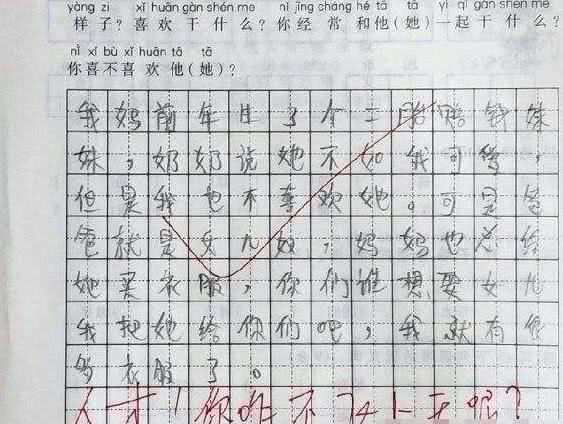 yàng zi xǐ huān gàn shén me nǐ jīng cháng hé tā tā yì qǐ gàn shén me
样子？喜欢干什么？你经常和他（她）一起干什么？
nǐ xǐ bù xǐ huān tā tā
你喜不喜欢他（她）？
我妈前年生了个二胎赔钱妹
妹，奶奶说她不如我可爱，
但是我也不喜欢她。可是爸
爸就是女儿奴，妈妈也总给
她买衣服，你们谁想要女儿
我把她给你们吧，我就有很
多衣服了。
人才！你咋不上天呢？